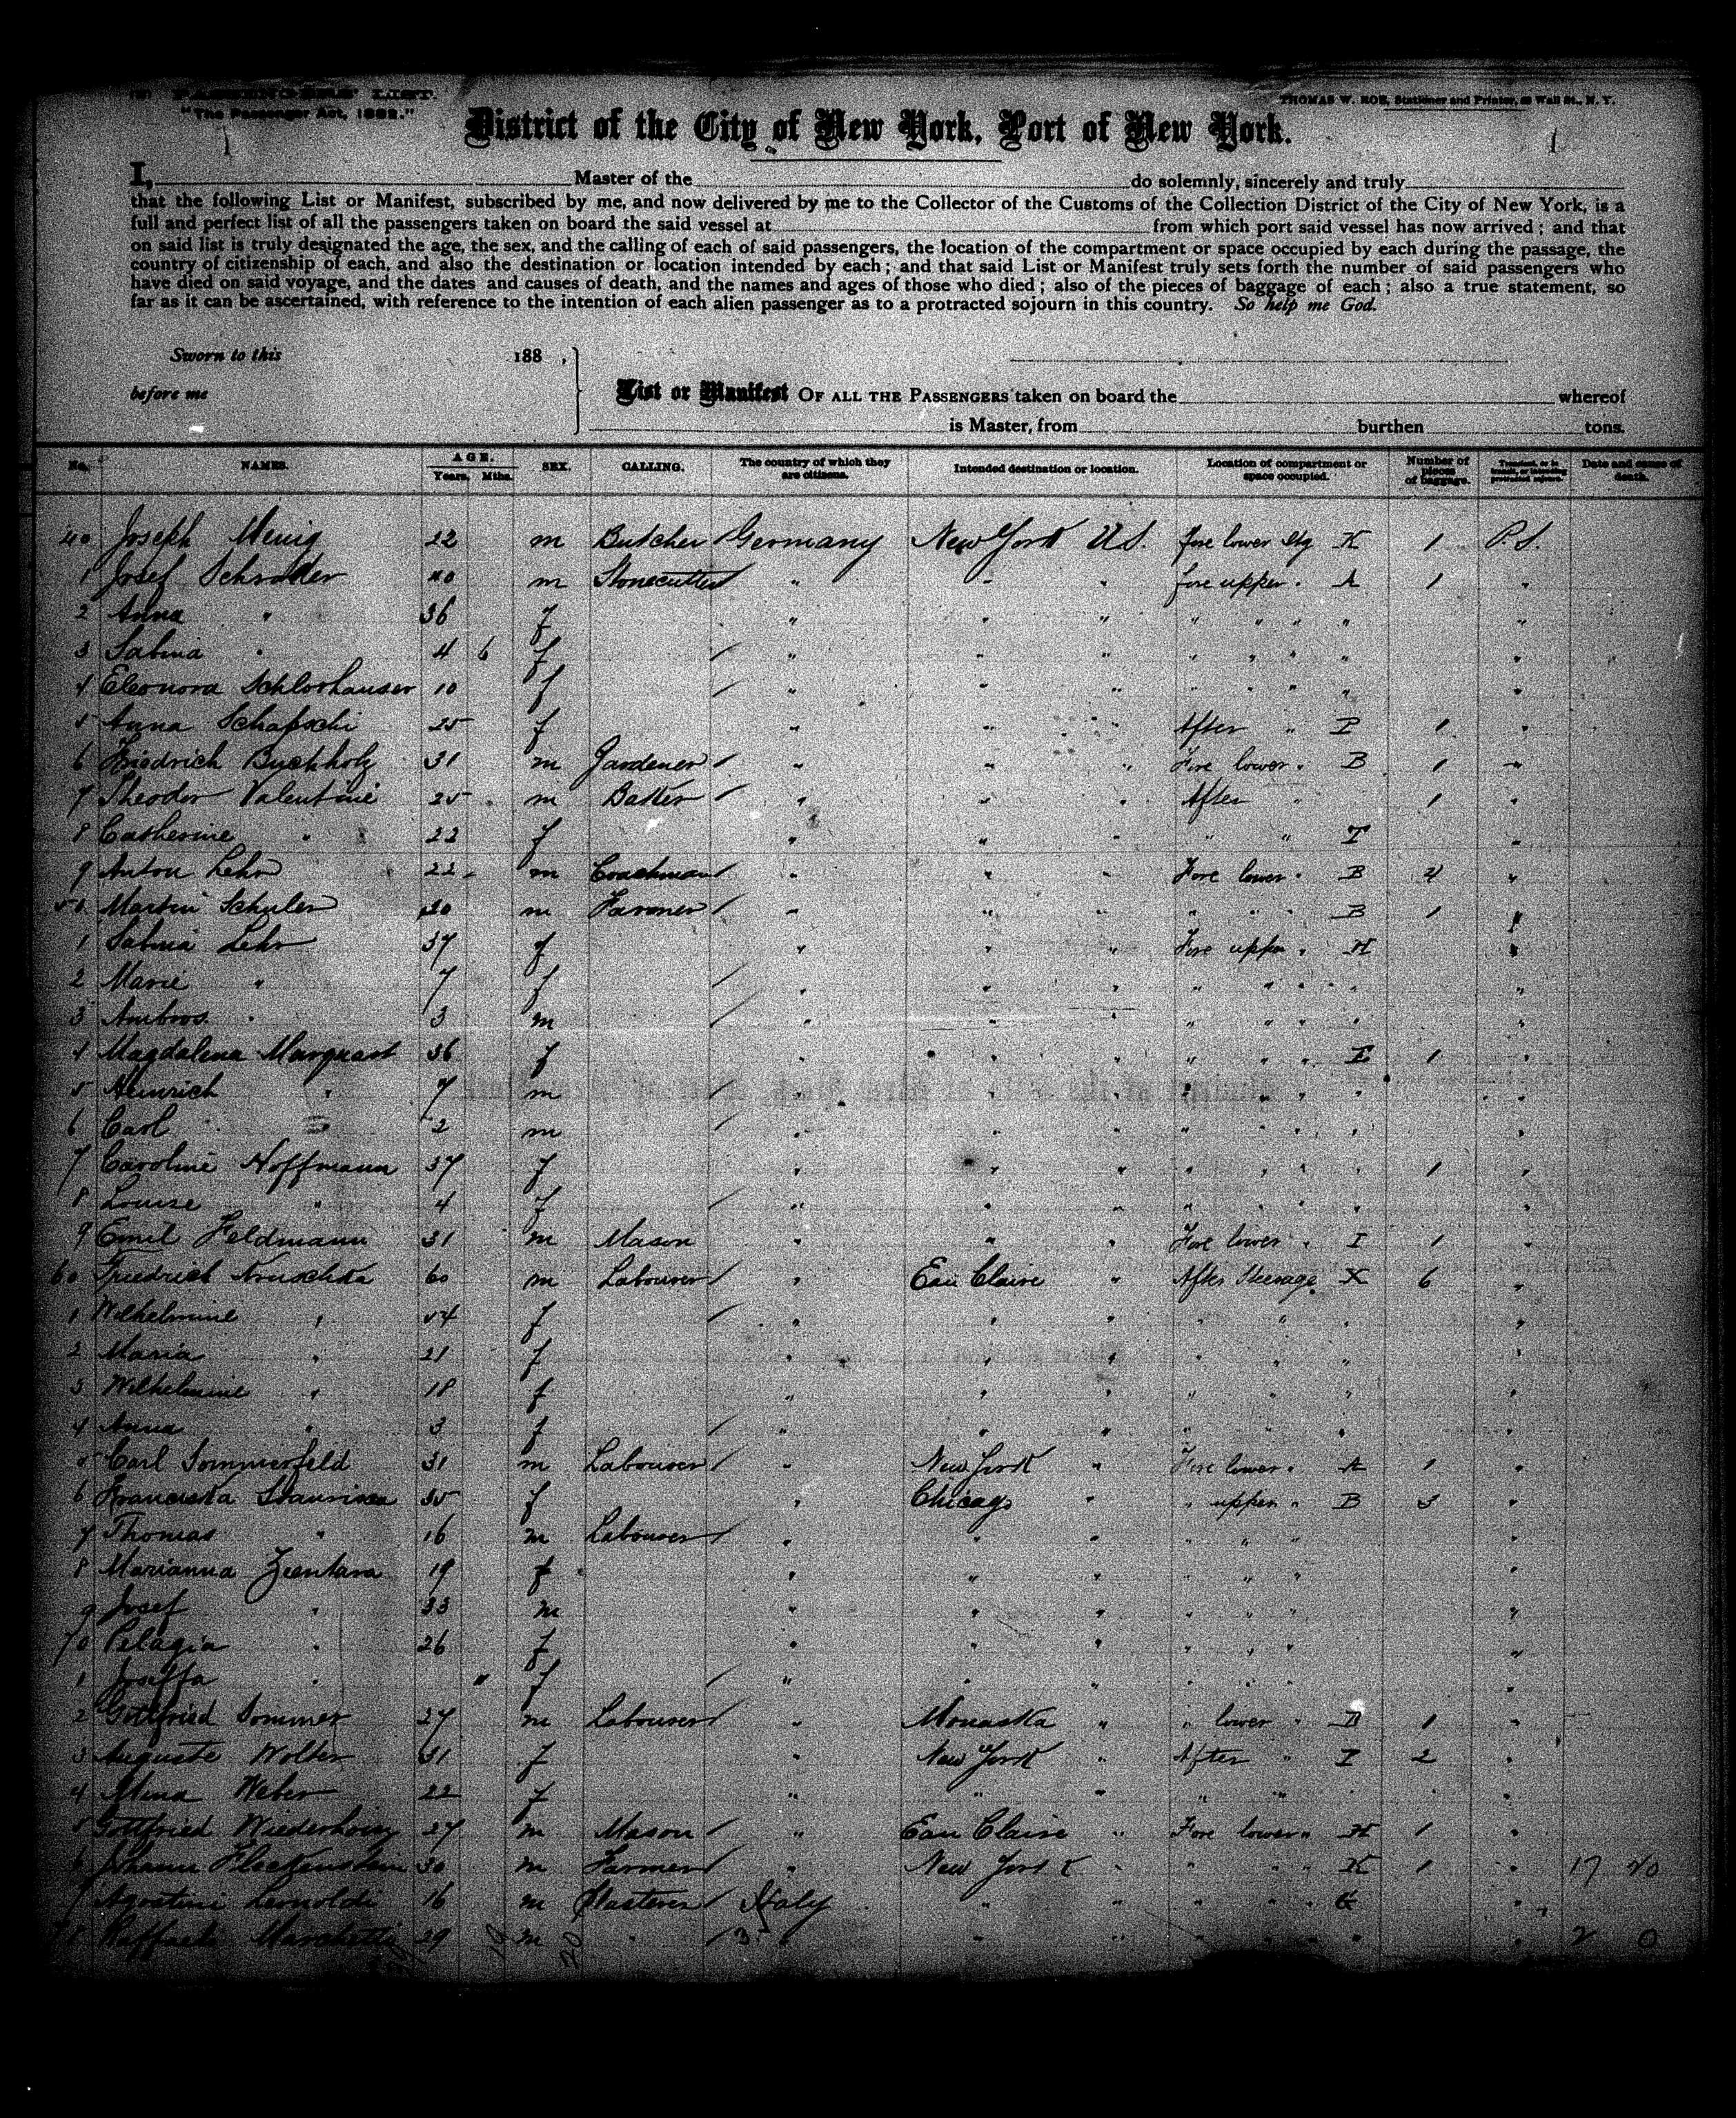 PASSENGERS' LIST.
"The Passenger Act, 1882."
THOMAS W. ROE, Stationer and Printer, Wall St., N. Y.
District of the City of New York, Port of New York.
1
I, Master of the do solemnly, sincerely and truly
that the following List or Manifest, subscribed by me, and now delivered by me to the Collector of the Customs of the Collection District of the City of New York, is a
full and perfect list of all the passengers taken on board the said vessel at from which port said vessel has now arrived; and that
on said list is truly designated the age, the sex, and the calling of each of said passengers, the location of the compartment or space occupied by each during the passage, the
country of citizenship of each, and also the destination or location intended by each; and that said List or Manifest truly sets forth the number of said passengers who
have died on said voyage, and the dates and causes of death, and the names and ages of those who died; also of the pieces of baggage of each; also a true statement, so
far as it can be ascertained, with reference to the intention of each alien passenger as to a protracted sojourn in this country. So help me God.
Sworn to this 188 ,
before me
List or Manifest OF ALL THE PASSENGERS taken on board the whereof
is Master, from burthen tons.
No. NAMES. AGE. Years. Mths. SEX. CALLING. The country of which they are citizens. Intended destination or location. Location of compartment or space occupied. Number of pieces of baggage. Transient, or in transit, or intending protracted sojourn. Date and cause of death.
40 Joseph Menig 22 m Butcher Germany New York U.S. fore lower stg K 1 P.S.
1 Josef Schroder 40 m Stonecutter " " " fore upper " A 1 "
2 Anna " 36 f " " " " " " " "
3 Sabina " 4 6 f " " " " " " " "
4 Eleonora Schlorhauser 10 f " " " " " " " "
5 Anna Schafschi 25 f " " " After " I 1 "
6 Friedrich Buchholz 31 m Gardener " " " Fore lower " B 1 "
7 Theodor Valentine 25 m Baker " " " After " 1 "
8 Catherine " 22 f " " " " " I "
9 Anton Lehr 22 m Coachman " " " Fore lower " B 2 "
50 Martin Schuler 20 m Farmer " " " " " " B 1 "
1 Sabina Lehr 37 f " " " Fore upper " H "
2 Marie " 7 f " " " " " " " "
3 Ambros " 3 m " " " " " " " "
4 Magdalena Marquart 36 f " " " " " " I 1 "
5 Heinrich " 7 m " " " " " " " "
6 Carl " 2 m " " " " " " " "
7 Caroline Hoffmann 37 f " " " " " " " 1 "
8 Louise " 4 f " " " " " " "
9 Emil Feldmann 31 m Mason " " " Fore lower " I 1 "
60 Friedrich Kruschka 60 m Labourer " Eau Claire " After Steerage X 6 "
1 Wilhelmine " 54 f " " " " " " "
2 Maria " 21 f " " " " " " "
3 Wilhelmine " 18 f " " " " " " "
4 Anna " 3 f " " " " " " "
5 Carl Sommerfeld 31 m Labourer " New York " Fore lower " A 1 "
6 Franciska 35 f " Chicago " " upper " B 3 "
7 Thomas " 16 m Labourer " " " " " "
8 Marianna Zientara 19 f " " " " " " "
9 Josef " 33 m " " " " " " "
70 Pelagia " 26 f " " " " " " "
1 Joseffa " " f " " " " " " "
2 Gottfried Sommer 27 m Labourer " Monaska " " lower " B 1 "
3 Auguste Wolter 31 f " New York " After " I 2 "
4 Mina Weber 22 f " " " " " " " "
5 Gottfried 27 m Mason " Eau Claire " Fore lower " H 1 "
6 Johann Fleckenstein 30 m Farmer " New York " " " " K 1 " 17 20
7 Agostini 16 m Plasterer Italy " " " " " G "
8 Raffaele Marchetti 29 m " " " " " " " " " 2 0